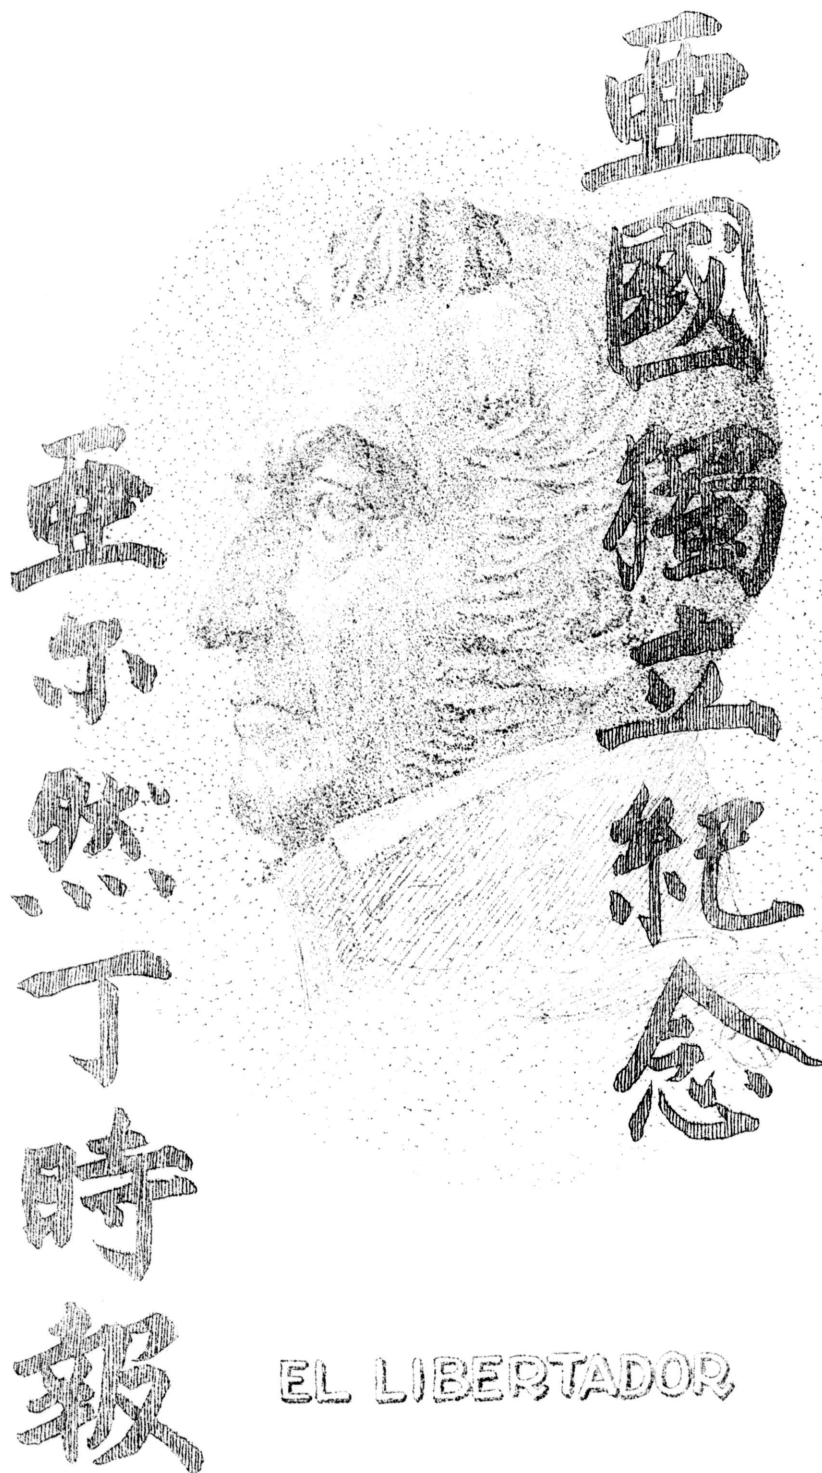 亜國獨立紀念
亜尔然丁時報
EL LIBERTADOR